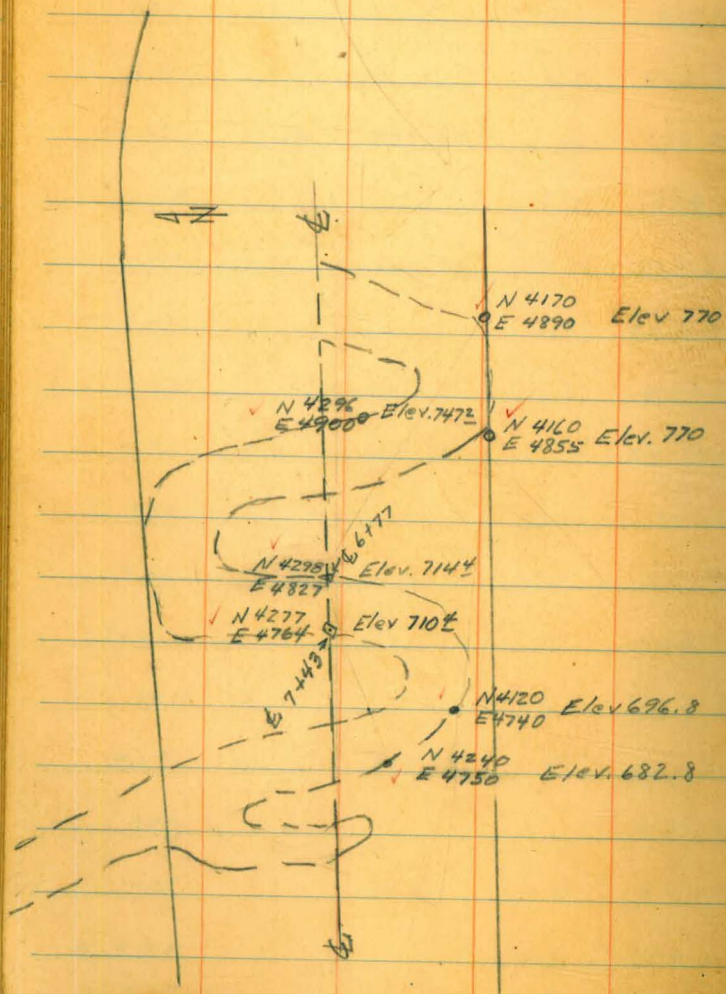 N
℄
N 4170
E 4890 Elev 770
N 4296
E 4900 Elev. 747²
N 4160
E 4855 Elev. 770
℄ 6+77
N 4298
E 4827 Elev. 714⁴
N 4277
E 4764 Elev 710⁴
℄ 7+43
N 4120
E 4740 Elev 696.8
N 4240
E 4750 Elev. 682.8
℄